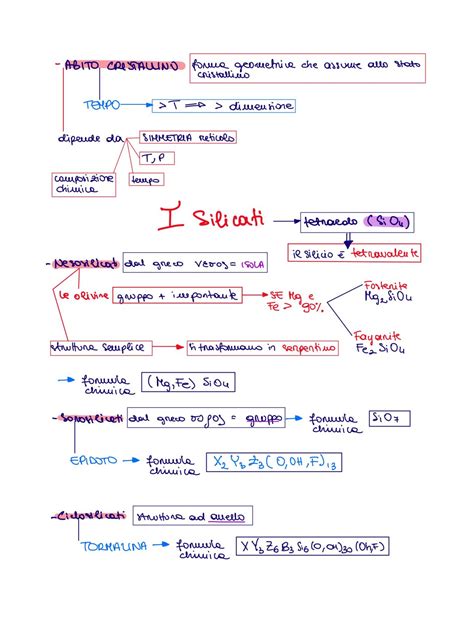 - ABITO CRISTALLINO forma geometrica che assume allo stato
cristallino
TEMPO → >T ⇒ > dimensione
dipende da SIMMETRIA reticolo
T, P
composizione
chimica
tempo
I Silicati → tetraedo (SiO4)
il silicio è tetravalente
- Nesosilicati dal greco νεσος = ISOLA
le olivine gruppo + importante → SE Mg e
Fe > 90%
Fostenite
Mg2SiO4
Fayanite
Fe2SiO4
struttura semplice → si trasformano in serpentino
→ formula
chimica
(Mg,Fe) SiO4
- Sorosilicati dal greco σοροσ = gruppo → formula
chimica
SiO7
EPIDOTO → formula
chimica
X2 Yb Z3 (O,OH,F)13
- Ciclosilicati struttura ad anello
TORMALINA → formula
chimica
XY3Z6B3Si6(O,OH)30(OH,F)